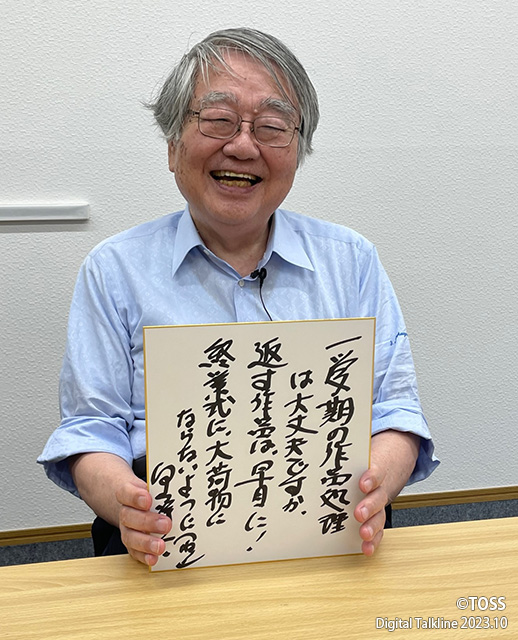 一学期の作品処理
は大丈夫ですか。
返す作品は、早目に！
終業式に、大荷物に
ならないように
©TOSS
Digital Talkline 2023.10